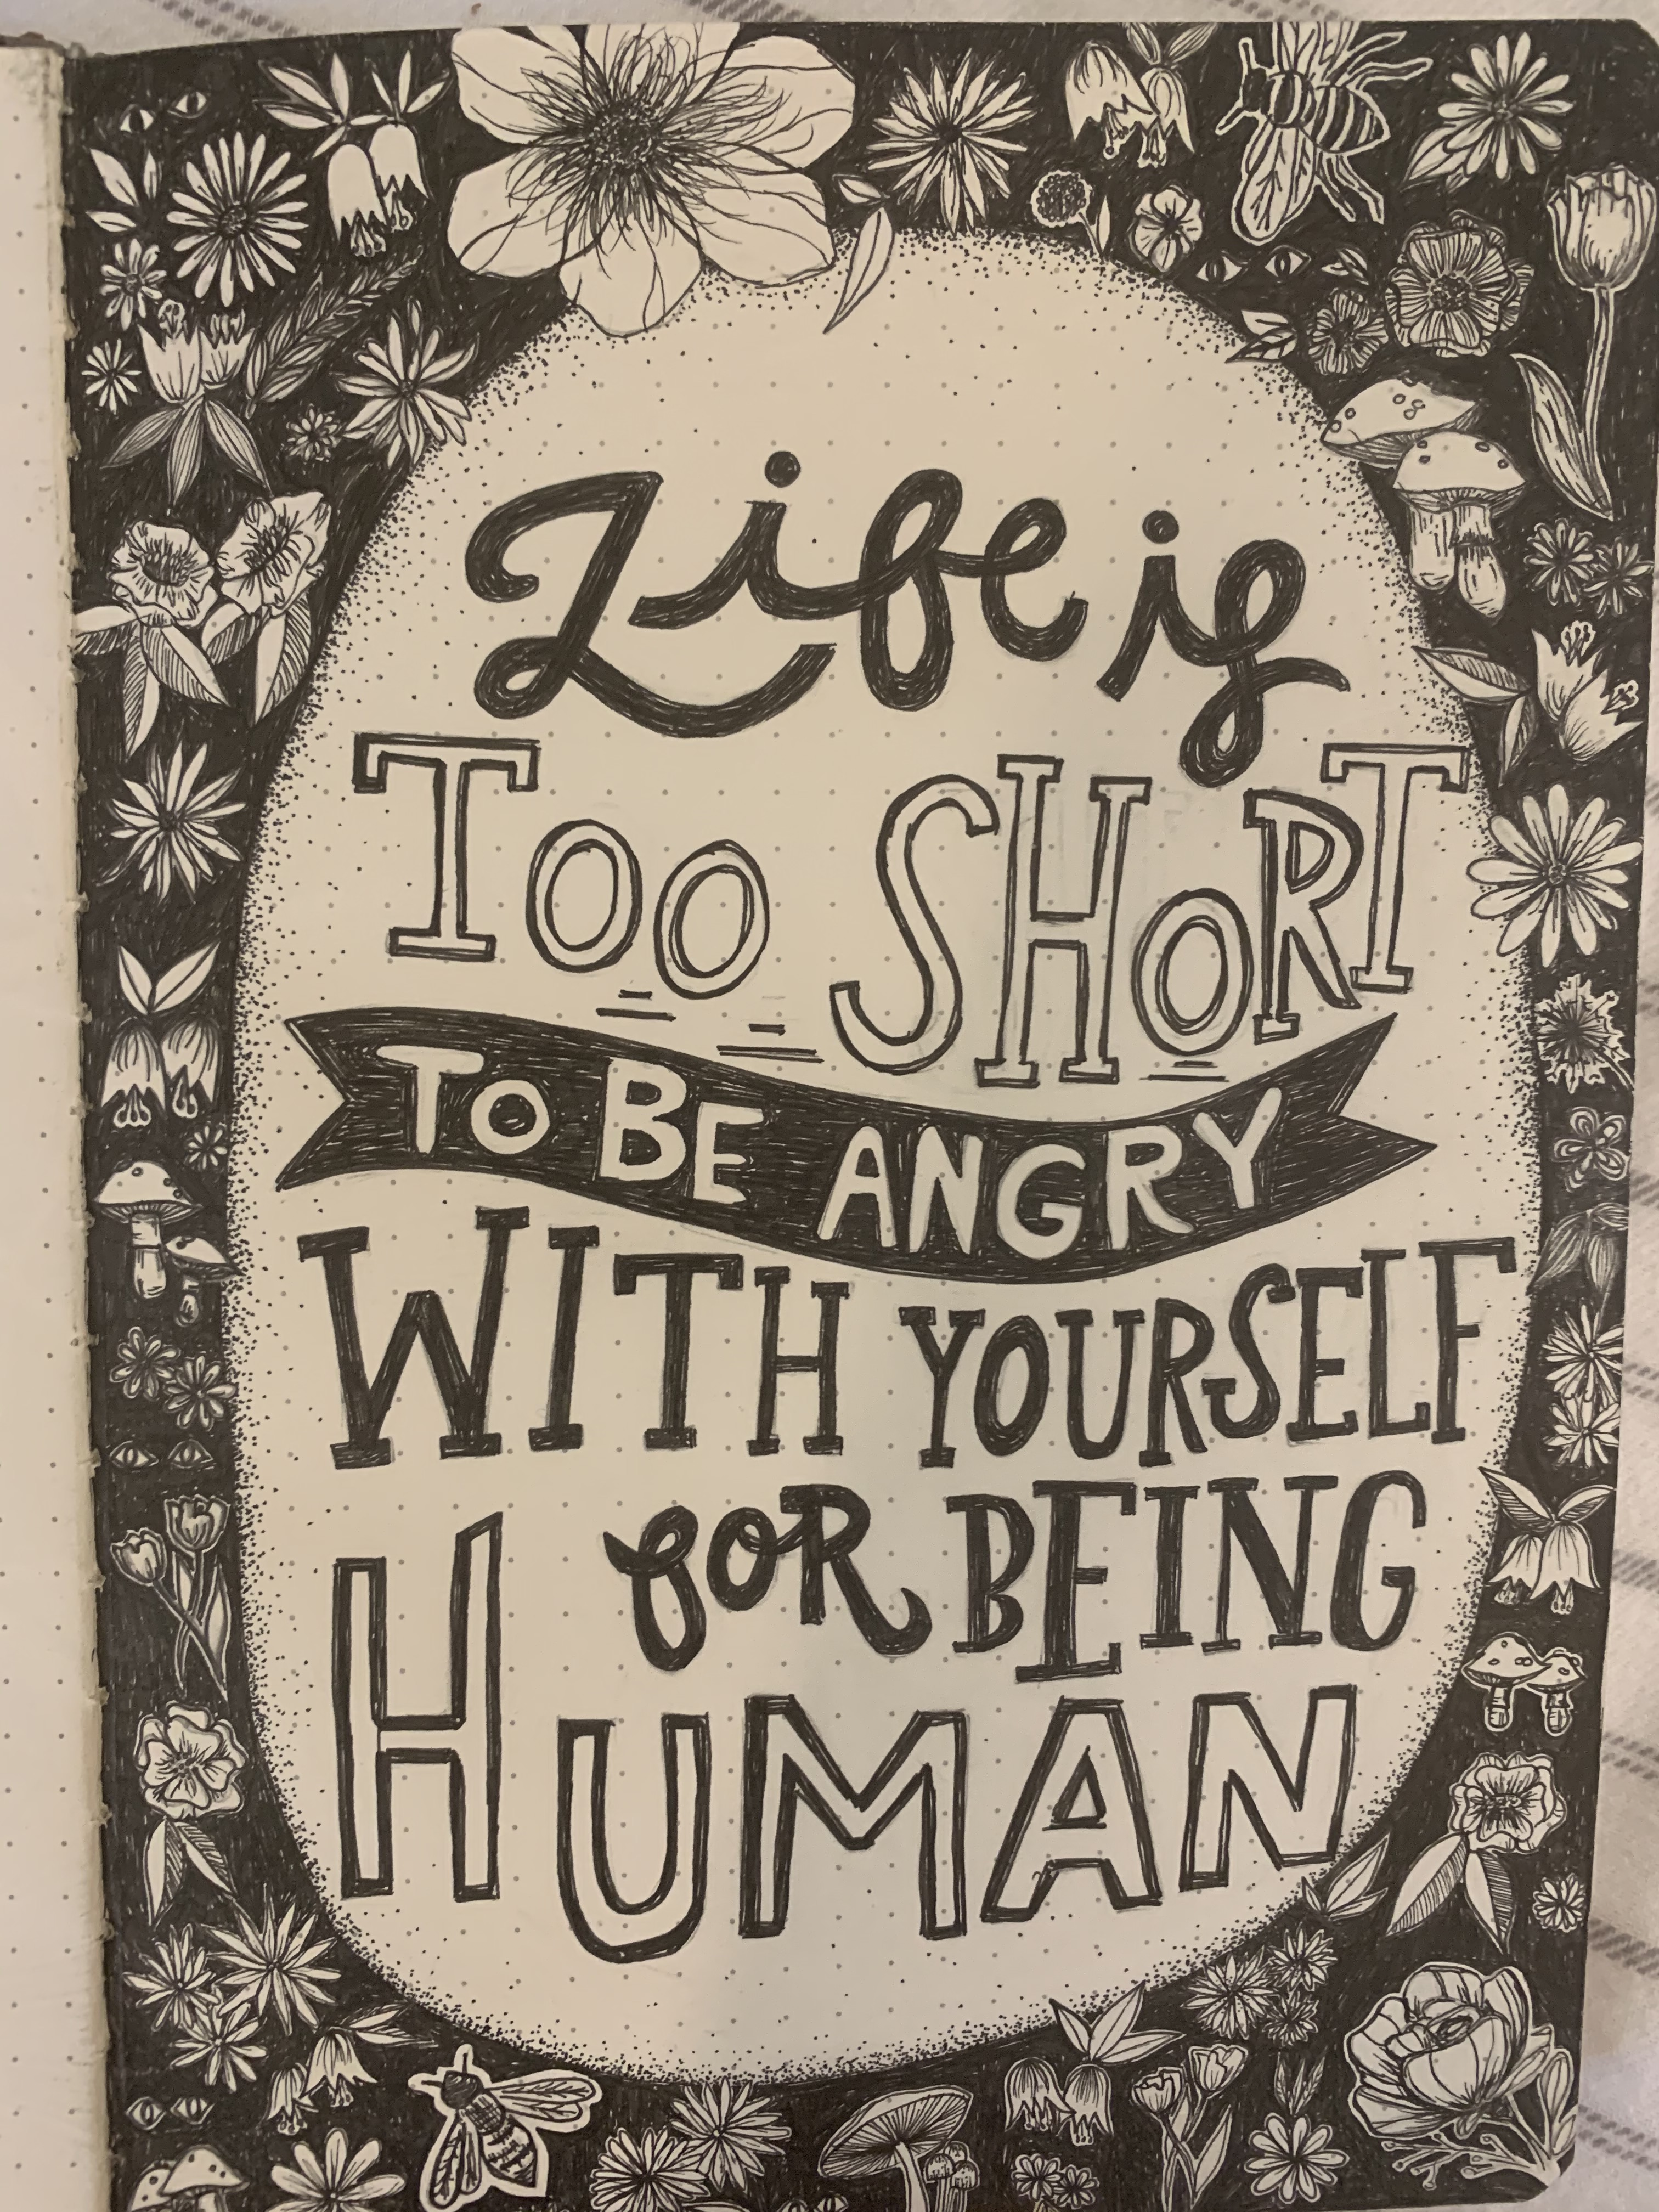 Life is
Too SHoRT
To BE ANGRY
WITH YOURSELF
foR BEING
HUMAN